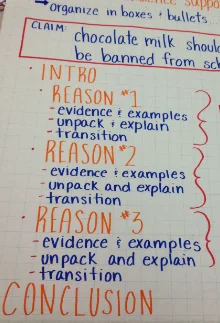 suppo
→ organize in boxes & bullets...
CLAIM:
chocolate milk shoul
be banned from sc
• INTRO
• REASON #1
- evidence & examples
- unpack & explain
- transition
• REASON #2
- evidence & examples
- unpack and explain
- transition
• REASON #3
- evidence & examples
- unpack and explain
- transition
CONCLUSION